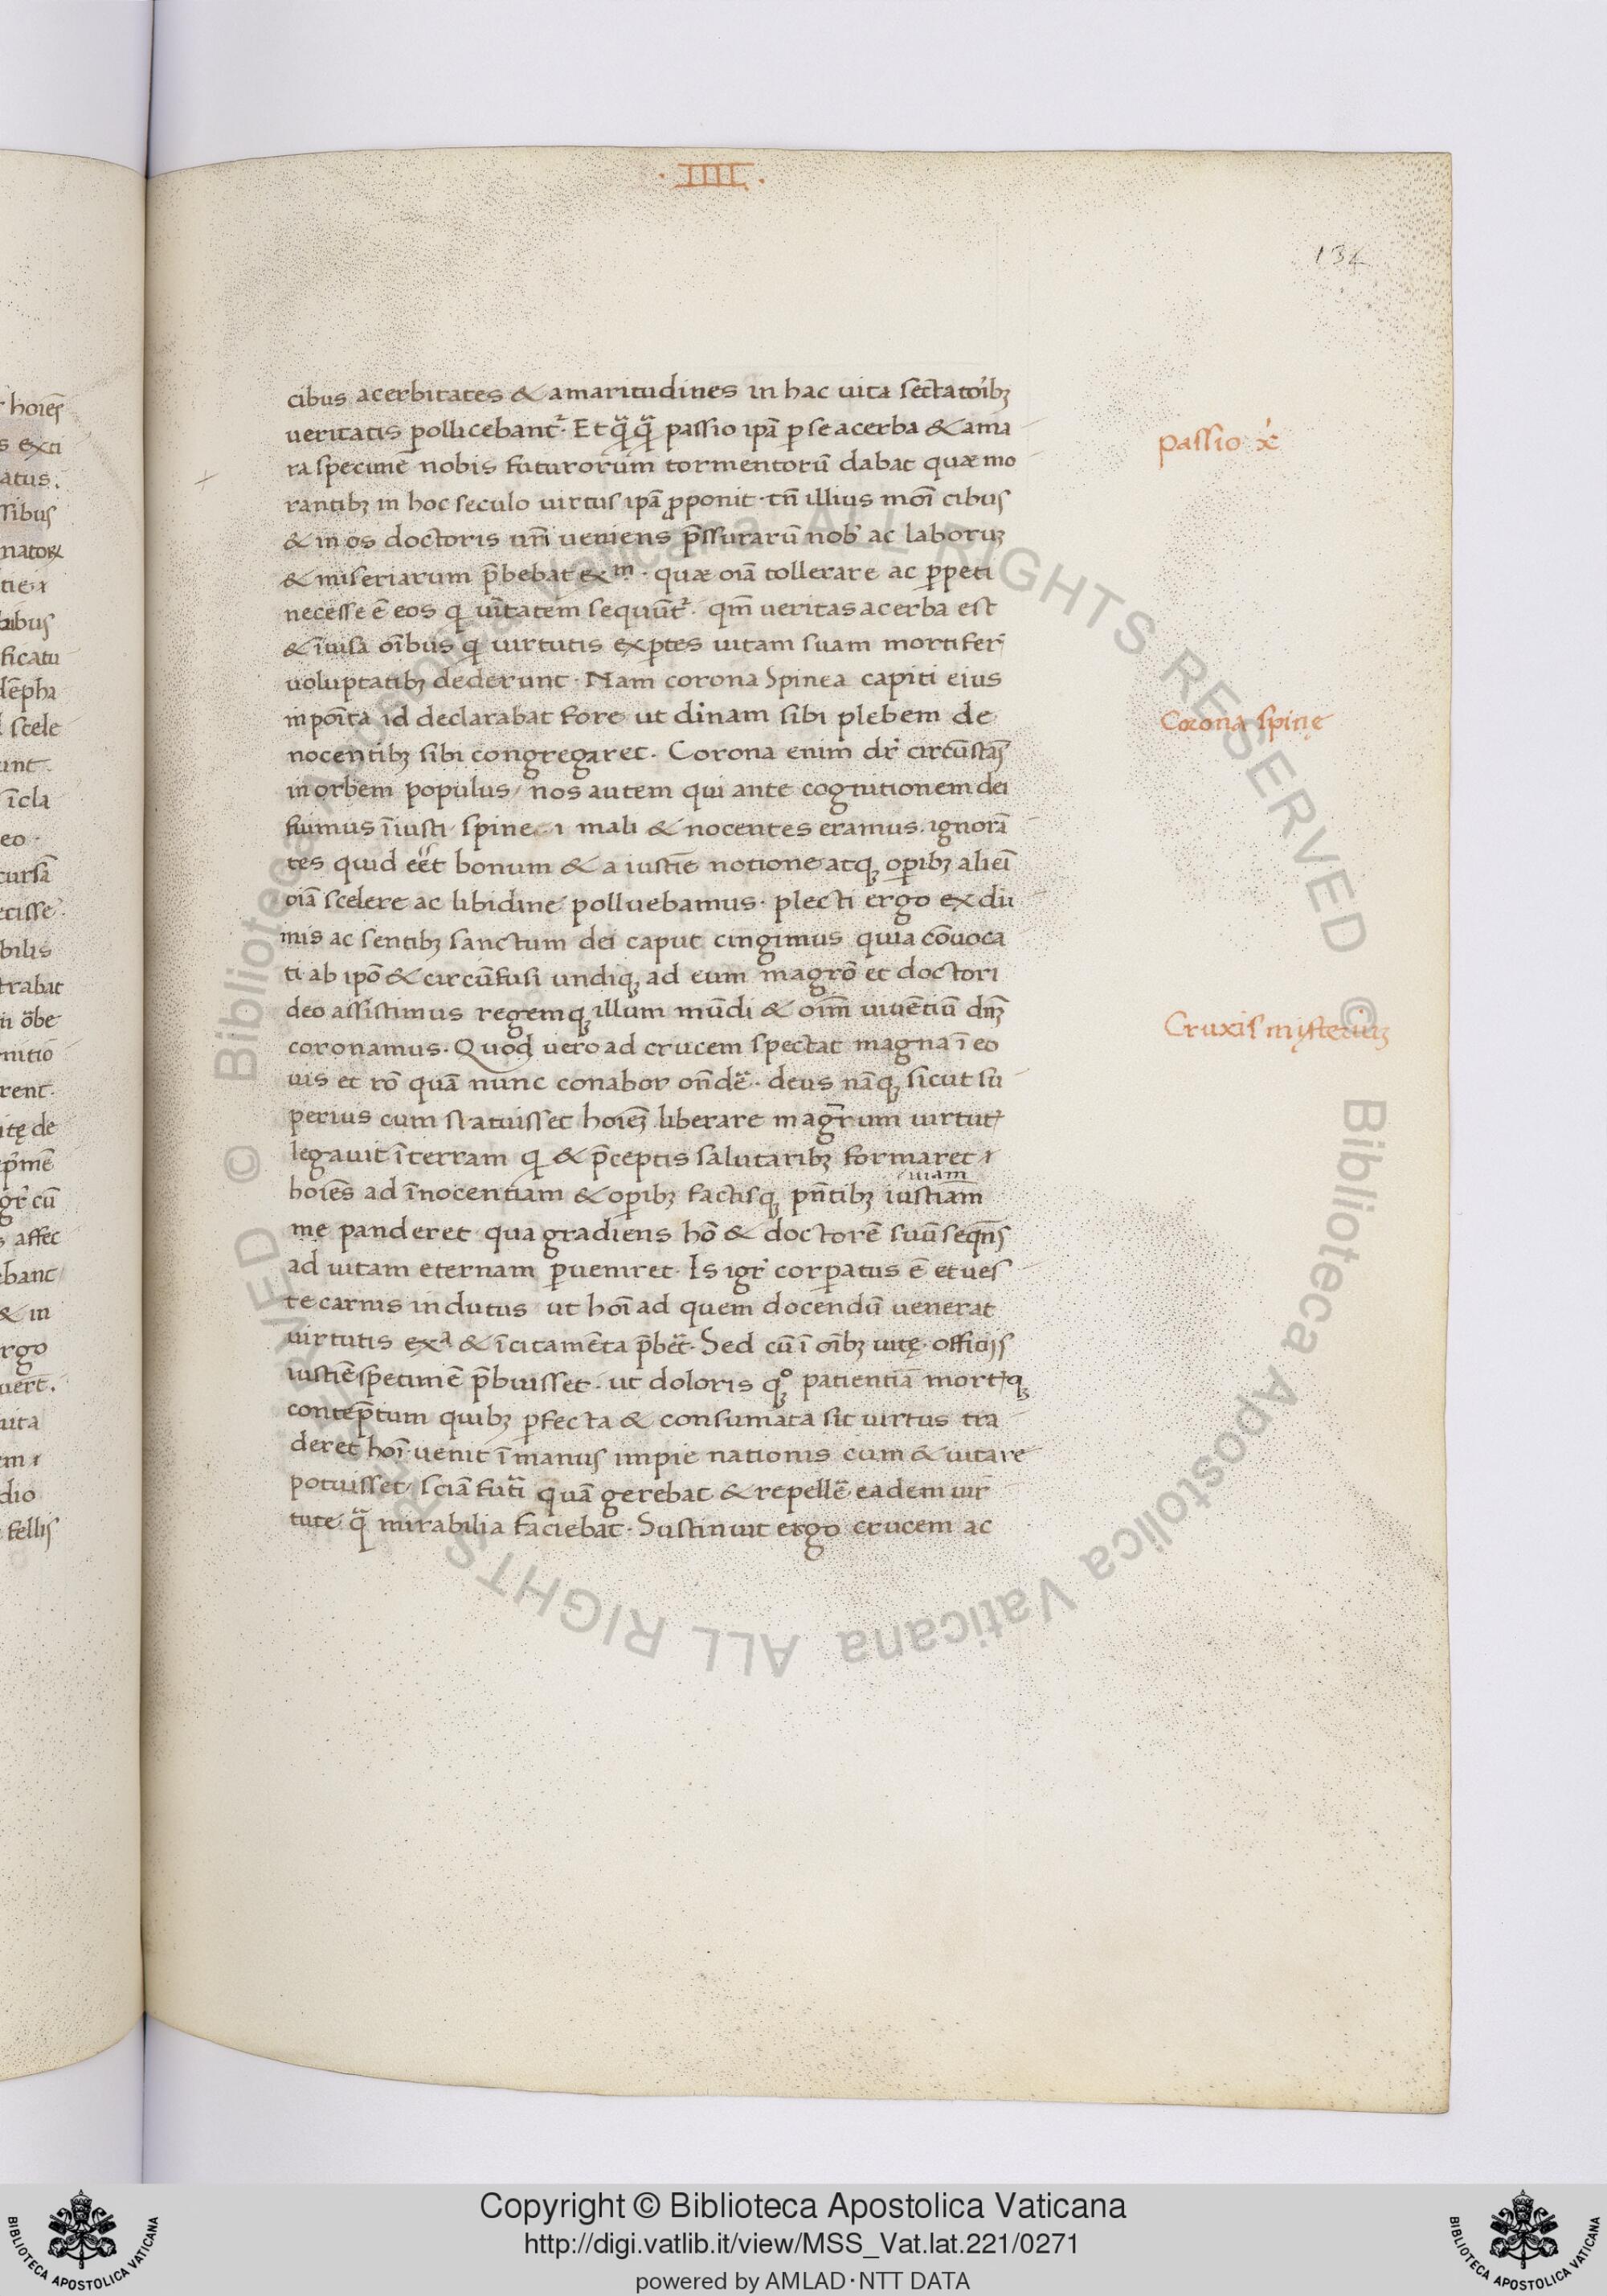 ·IIII·
134
cibus acerbitates & amaritudines in hac uita sectatoıb̾ꝫ
ueritatis pollicebant᷑· Et qͣqͣ passio ipā ꝑ se acerba & ama
passio x͞c
ra specimē nobis futurorum tormentorū dabat quæ mo
rantibꝫ in hoc seculo uirtus ipā ꝓponit· tn̄ illius moı̄ cibus
& in os doctoris nr̄i ueniens p̄ssurarū nob̾ ac laboruꝫ
& miseriarum p̄bebat exᵐ· quæ oı̄a tollerare ac ꝑpeti
necesse ē eos q uı̄tatem sequūt᷑· qm̄ ueritas acerba est
& īuisa oı̄bus q uirtutis exꝑtes uitam suam mortifer̄
uoluptatibꝫ dederunt· Nam corona spinea capiti eius
inpoı̄ta id declarabat fore ut diuinam sibi plebem de
Corona spinę
nocentibꝫ sibi congregaret· Corona enim dr̄ circūstās
in orbem populus/ nos autem qui ante cognitionem dei
fuimus īiusti· spine ·i· mali & nocentes eramus· ignorā
tes quid eēt bonum & a iustı̄e notione atqꝫ oꝑibꝫ alieı̄
oı̄a scelere ac libidine polluebamus· plecti ergo ex du
mis ac sentibꝫ sanctum dei caput cingimus quia cōuoca
ti ab ipō & circūfusi undiqꝫ ad eum magr̄o et doctori
deo assistimus regemqꝫ illum mūdi & oı̄m uiuētiū dn̄ꝫ
Cruxis mįsteriuꝫ
coronamus· Quod uero ad crucem spectat magna ī eo
uis et rō quā nunc conabor on̄dē̾· deus nāqꝫ sicut su
perius cum statuisset hoieꝫ liberare magr̄um uirtut̾
legauit ī terram q & p̄ceptis salutaribꝫ formaret
hoiēs ad īnocentiam & oꝑibꝫ factisqꝫ pn̄tibꝫ iustiam
uiam
me panderet qua gradiens hō & doctorē suū seqn̄s
ad uitam eternam ꝑueniret· Is igr̄ corꝑatus ē et ues
te carnis indutus ut hoı̄ ad quem docendū uenerat
uirtutis exᵃ & īcitamēta p̄bēt· Sed cū ī oı̄bꝫ uitę officijs
iustı̄e specimē p̄buisset· ut doloris qꝫ° patientiā mort̾qꝫ
contēp̄tum quibꝫ ꝑfecta & consumata sit uirtus tra
deret hoı̄· uenit ī manus impie nationis cum & uitare
potuisset/ sciā futı̄ quā gerebat & repellē̾ eadem uir
tute qͣ mirabilia faciebat· Sustinuit ergo crucem ac
Copyright © Biblioteca Apostolica Vaticana
http://digi.vatlib.it/view/MSS_Vat.lat.221/0271
powered by AMLAD·NTT DATA